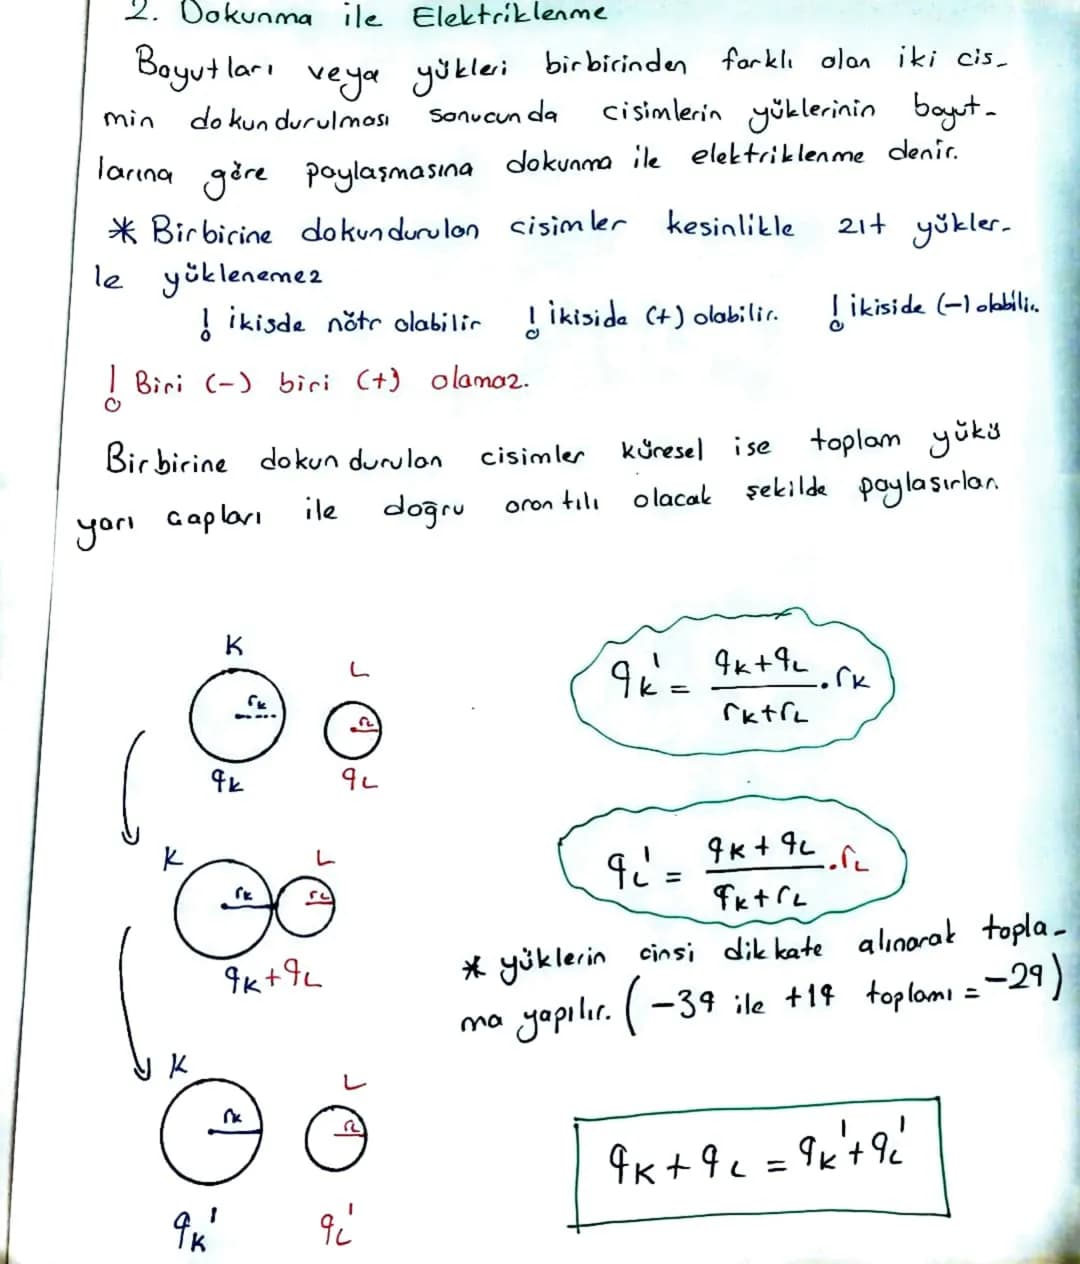 2. Dokunma ile Elektriklenme
Boyutları veya yükleri birbirinden farklı olan iki cis-
min dokundurulması sonucunda cisimlerin yüklerinin boyut-
larına göre paylaşmasına dokunma ile elektriklenme denir.
* Birbirine dokundurulan cisimler kesinlikle zıt yükler-
le yüklenemez
! ikisde nötr olabilir ! ikiside (+) olabilir. ! ikiside (-) olabilir.
! Biri (-) biri (+) olamaz.
Birbirine dokundurulan cisimler küresel ise toplam yükü
yarı çapları ile doğru orantılı olacak şekilde paylaşırlar.
K
L
rK
rL
qK
qL
qK' = (qK+qL)/(rK+rL) . rK
K
L
rK
rL
qK+qL
qL' = (qK+qL)/(rK+rL) . rL
* yüklerin cinsi dikkate alınarak topla-
ma yapılır. (-3q ile +1q toplamı = -2q)
K
L
rK
rL
qK'
qL'
qK + qL = qK' + qL'